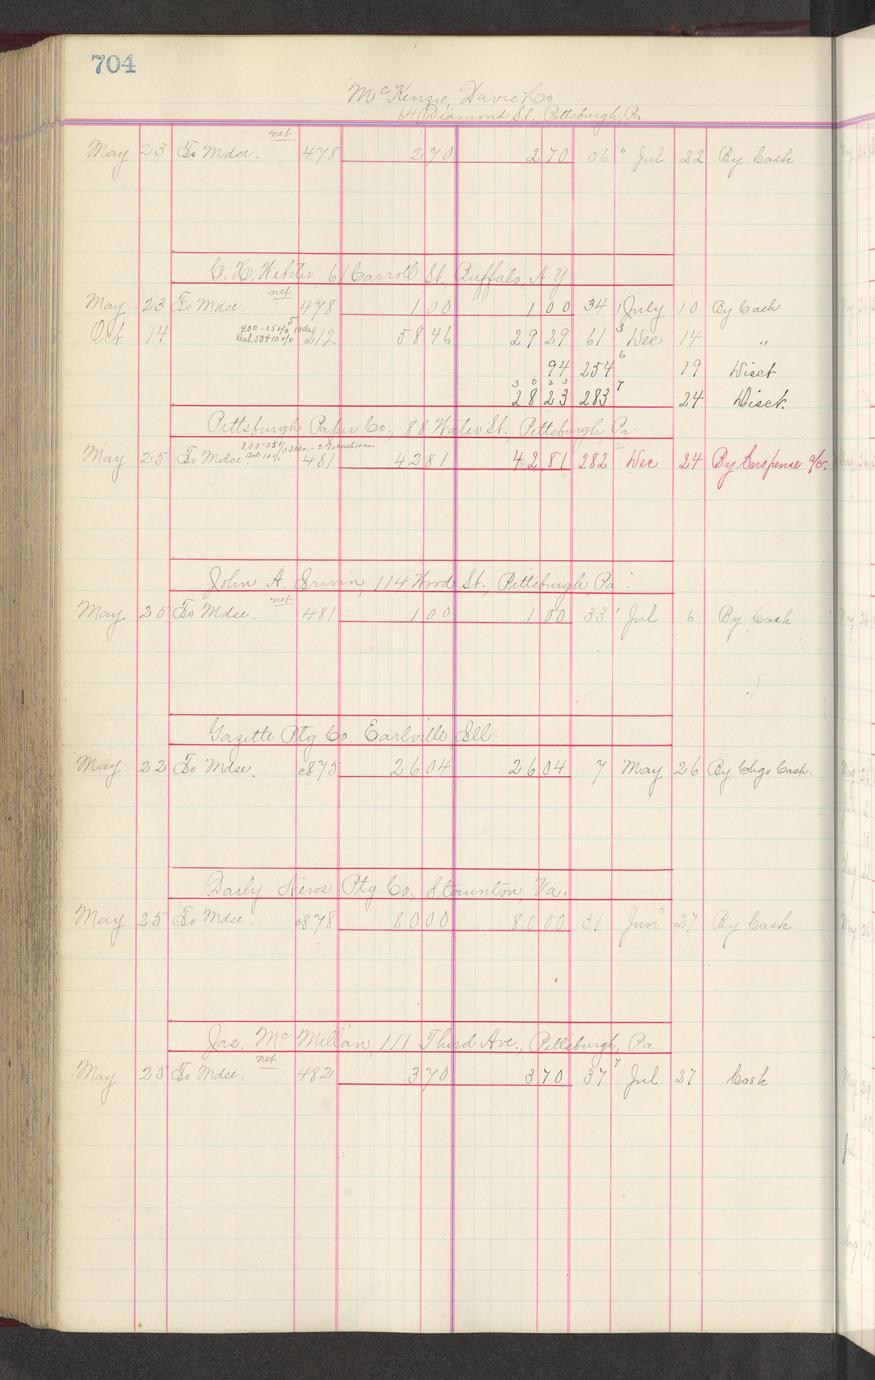 704
McKenzie, Davis & Co
64 Diamond St. Pittsburgh, Pa
May 23 To Mdse. net 478 270 270 06 6 Jul 22 By Cash
C. H. Webster, 61 Carroll St. Buffalo, N Y
May 23 To Mdse. net 478 100 100 34 1 July 10 By Cash
Oct 14 212 5846 2929 61 3 Dec 14 "
94 254 6 19 Disct
3023
2823 283 7 24 Disct.
Pittsburgh Paper Co., 88 Water St. Pittsburgh Pa.
May 25 To Mdse. 481 4281 4281 282 Dec 24 By Suspense a/c.
John A. Irwin, 114 Wood St., Pittsburgh Pa.
May 25 To Mdse. net 481 100 100 33 1 Jul 6 By Cash
Gazette Ptg Co. Earlville, Ill.
May 22 To Mdse. c875 2604 2604 7 May 26 By Chgs Cash.
Daily News Ptg Co., Staunton, Va.
May 25 To Mdse. c878 8000 8000 31 Jun 27 By Cash
Jas. McMillan, 111 Third Ave., Pittsburgh, Pa
May 25 To Mdse. net 482 370 370 37 7 Jul 27 Cash